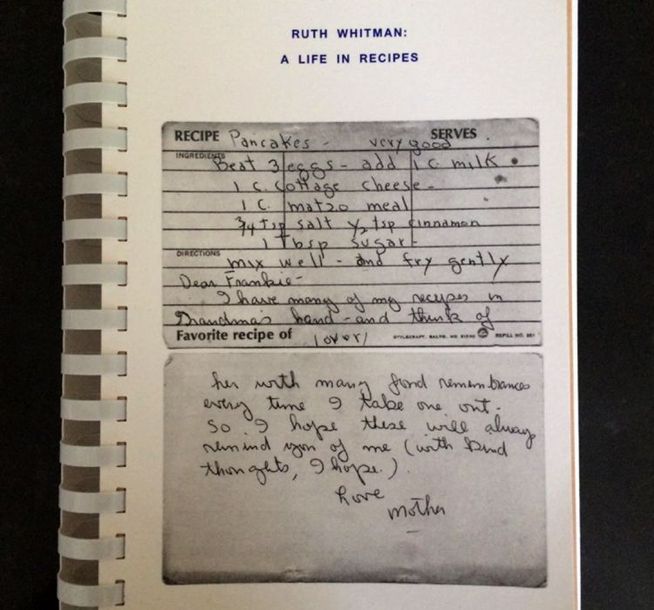 RUTH WHITMAN:
A LIFE IN RECIPES
RECIPE Pancakes - very good SERVES
INGREDIENTS Beat 3 eggs - add 1 c milk
1 c. cottage cheese -
1 c. matzo meal
3/4 tsp salt 1/2 tsp cinnamon
1 Tbsp sugar -
DIRECTIONS mix well - and fry gently
Dear Frankie -
I have many of my recipes in
Grandma's hand - and think of
Favorite recipe of (over) STYLECRAFT, BALTO., MD REFILL NO.
her with many fond remembrances
every time I take one out.
So I hope these will always
remind you of me (with kind
thoughts, I hope.)
Love
Mother